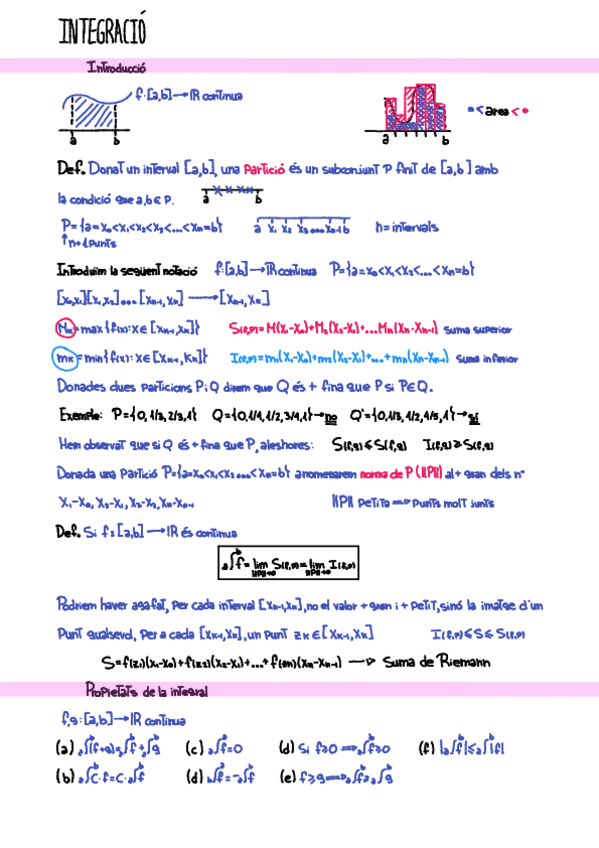 INTEGRACIÓ
Introducció
f:[a,b]→IR contínua
a b
a b
•<area<•
Def. Donat un interval [a,b], una partició és un subconjunt P finit de [a,b] amb
la condició que a,b∈P. a b
P={a=x₀<x₁<x₂<x₃<...<xₙ=b} a x₁ x₂ x₃...xₙ₋₁ b n=intervals
↑n+1 punts
Introduïm la següent notació f:[a,b]→IR contínua P={a=x₀<x₁<x₂<...<xₙ=b}
[x₀,x₁][x₁,x₂]...[xₙ₋₁,xₙ] → [xₖ₋₁,xₖ]
Mₖ=max{f(x):x∈[xₖ₋₁,xₖ]} S(f,P)=M₁(x₁-x₀)+M₂(x₂-x₁)+...Mₙ(xₙ-xₙ₋₁) suma superior
mₖ=min{f(x):x∈[xₖ₋₁,xₖ]} I(f,P)=m₁(x₁-x₀)+m₂(x₂-x₁)+...+mₙ(xₙ-xₙ₋₁) suma inferior
Donades dues particions P i Q direm que Q és + fina que P si P∈Q.
Exemple: P={0,1/3,2/3,1} Q={0,1/4,1/2,3/4,1}→no Q'={0,1/3,1/2,4/5,1}→sí
Hem observat que si Q és + fina que P, aleshores: S(f,Q)≤S(f,Q) I(f,Q)≥S(f,Q)
Donada una partició P={a=x₀<x₁<x₂...<xₙ=b} anomenarem norma de P (||P||) al + gran dels nº
x₁-x₀, x₂-x₁, x₃-x₂, xₙ-xₙ₋₁ ||P|| petita ⟹ punts molt junts
Def. Si f:[a,b]→IR és contínua
ₐ∫ᵇf = lim S(f,P) = lim I(f,P)
||P||→0 ||P||→0
Podríem haver agafat, per cada interval [xₖ₋₁,xₖ], no el valor + gran i + petit, sinó la imatge d'un
punt qualsevol, per a cada [xₖ₋₁,xₖ], un punt zₖ∈[xₖ₋₁,xₖ] I(f,P)≤S≤S(f,P)
S=f(z₁)(x₁-x₀)+f(z₂)(x₂-x₁)+...+f(zₙ)(xₙ-xₙ₋₁) → Suma de Riemann
Propietats de la integral
f,g:[a,b]→IR contínua
(a) ₐ∫ᵇ(f+g)=ₐ∫ᵇf+ₐ∫ᵇg (c) ₐ∫ᵃf=0 (d) Si f≥0 ⟹ ₐ∫ᵇf≥0 (f) |ₐ∫ᵇf|≤ₐ∫ᵇ|f|
(b) ₐ∫ᵇC·f=C·ₐ∫ᵇf (d) ₐ∫ᵇf=-ᵦ∫ᵃf (e) f≥g⟹ₐ∫ᵇf≥ₐ∫ᵇg